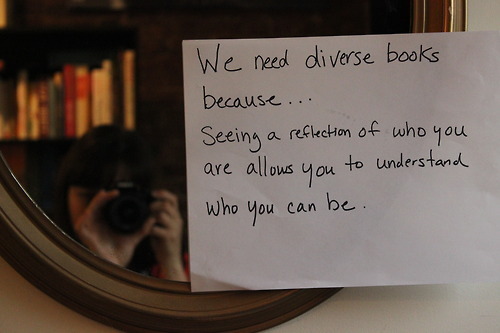 We need diverse books
because...
Seeing a reflection of who you
are allows you to understand
who you can be.